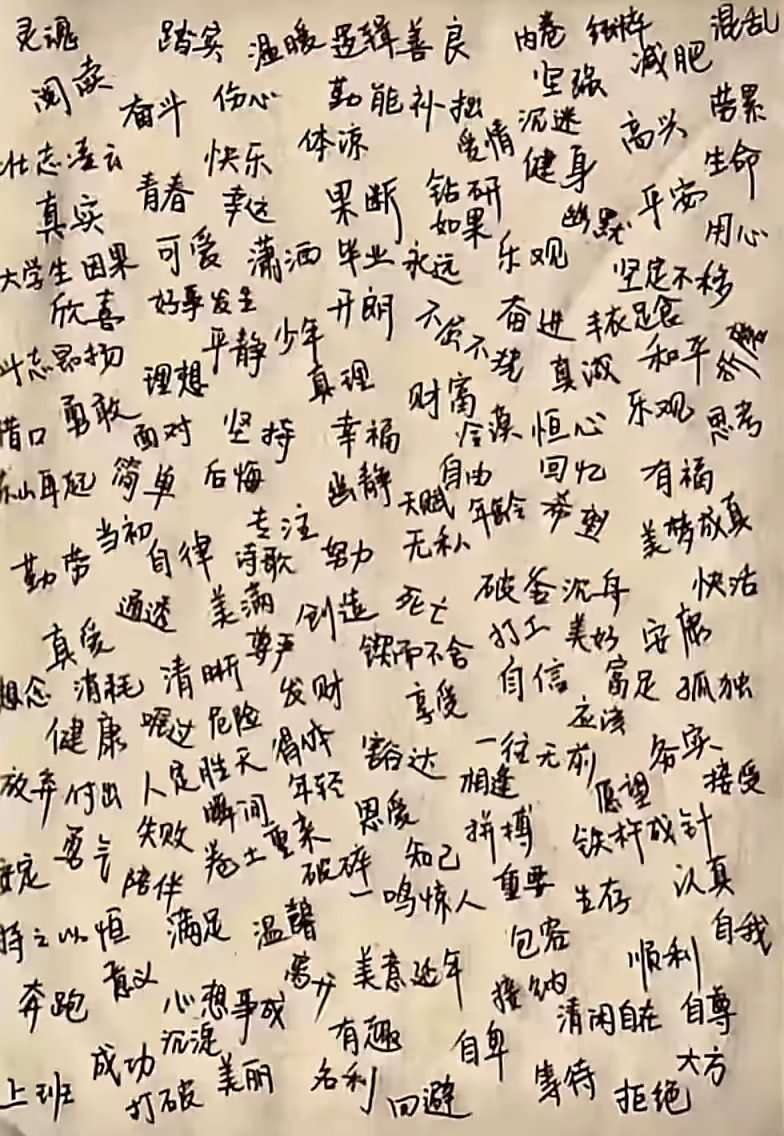 灵魂 踏实 温暖 逻辑 善良 内卷 纯粹 混乱
阅读 奋斗 伤心 勤能补拙 坚强 减肥
壮志凌云 快乐 体凉 爱情 沉迷 高兴 劳累
真实 青春 幸运 果断 钻研 健身 生命
如果 幽默 平安 用心
大学生 因果 可爱 潇洒 毕业 永远 乐观 坚定不移
欣喜 好事发生 开朗 不屈不挠 奋进 丰衣足食
斗志昂扬 理想 平静 少年 真理 真诚 和平
借口 勇敢 面对 坚持 幸福 财富 冷漠 恒心 乐观 思考
东山再起 简单 后悔 幽静 自由 回忆 有福
当初 专注 天赋 年龄 美梦成真
勤劳 自律 诗歌 努力 无私
通透 美满 创造 死亡 破釜沉舟 快活
真爱 尊严 锲而不舍 打工 美好 安康
想念 消耗 清晰 发财 享受 自信 富足 孤独
健康 危险 得体 豁达 一往无前 应该 务实
放弃 付出 人定胜天 年轻 相逢 愿望 接受
勇气 失败 瞬间 卷土重来 恩爱 拼搏 铁杵成针
安定 陪伴 破碎 知己 重要 生存 认真
持之以恒 满足 温馨 一鸣惊人 包容 自我
奔跑 意义 心想事成 离开 美意延年 接纳 顺利
沉淀 有趣 清闲自在 自尊
上班 成功 美丽 名利 自卑 等待 大方
打破 回避 拒绝